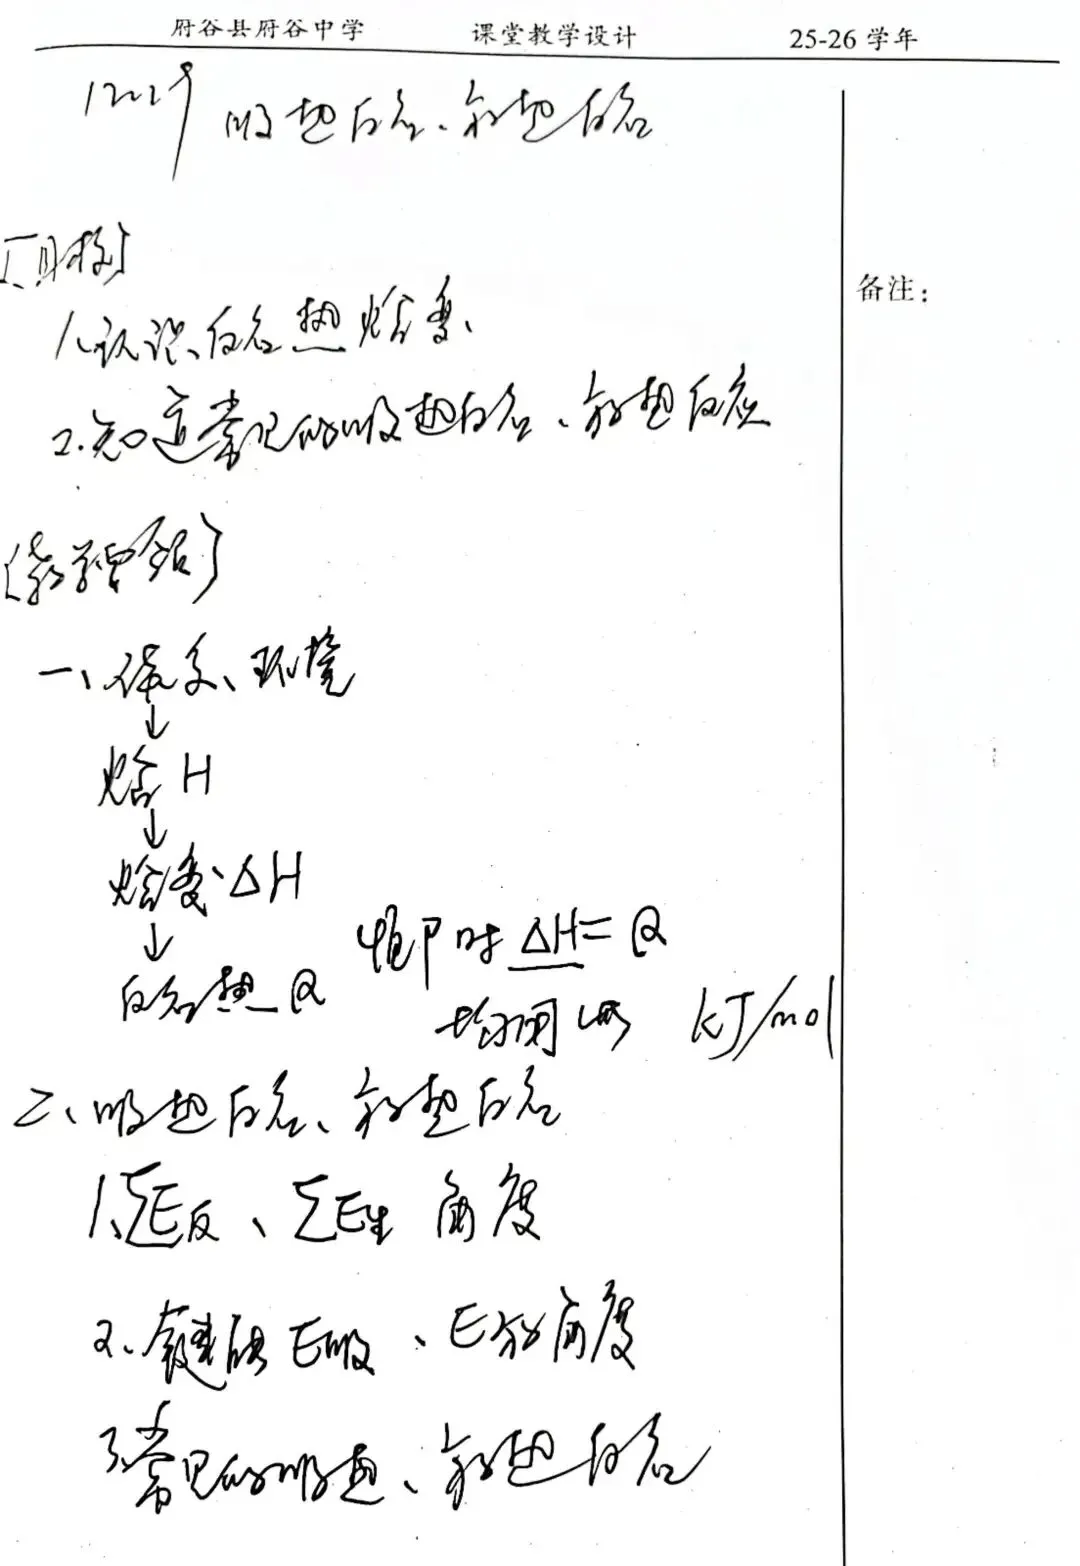 府谷县府谷中学 课堂教学设计 25-26 学年
吸热反应、放热反应
[目标]
备注：
1.认识反应热 焓变、
2.知道常见的吸热反应、放热反应
一、体系、环境
↓
焓 H
↓
焓变 △H
↓
反应热 Q 恒P时 △H=Q
kJ/mol
二、吸热反应、放热反应
1.∑E反、∑E生 角度
2.键能 E吸、E放角度
3.常见的吸热、放热反应